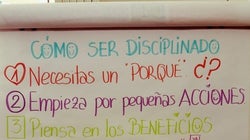 CÓMO SER DISCIPLINADO
1 Necesitas un "PORQUÉ" ¿?
2 Empieza por pequeñas ACCIONES
3 Piensa en los BENEFICIOS